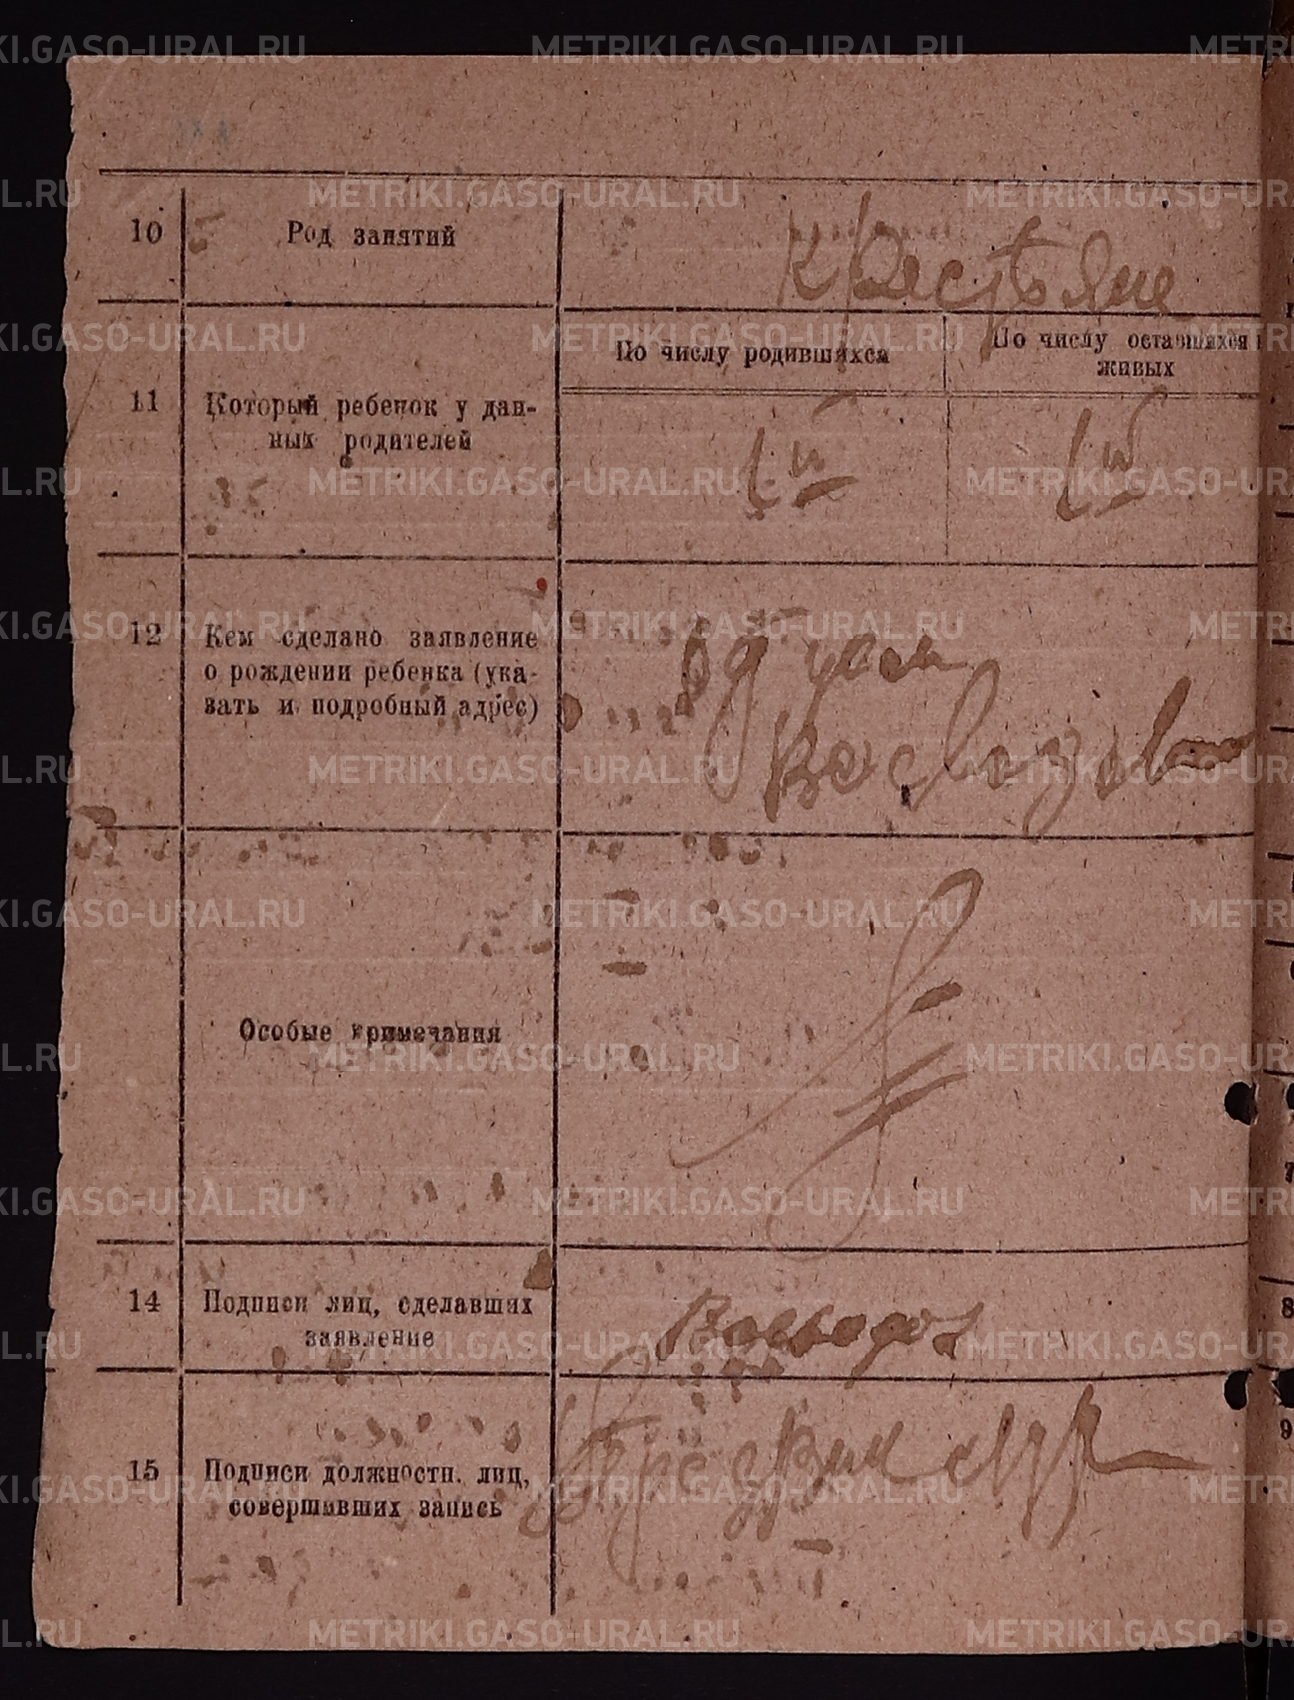 METRIKI.GASO-URAL.RU
10 Род занятий крестьяне
По числу родившихся
По числу оставшихся в живых
11 Который ребенок у дан-
ных родителей
1й 1й
12 Кем сделано заявление
о рождении ребенка (ука-
зать и подробный адрес)
отцом
Особые примечания
14 Подписи лиц, сделавших
заявление
15 Подписи должностн. лиц,
совершивших запись
7
8
9